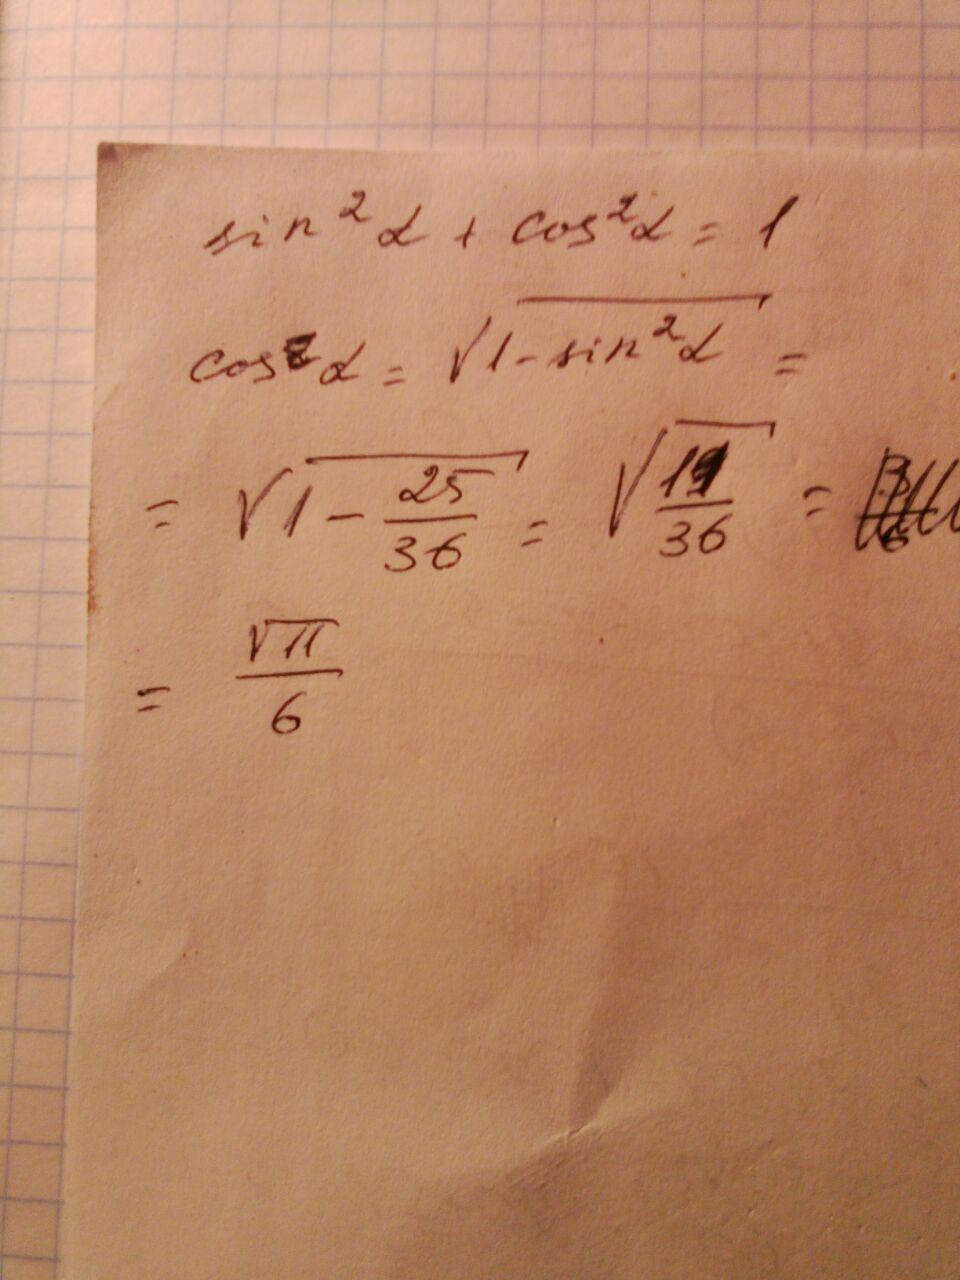 sin²α + cos²α = 1
cos α = √(1 - sin²α) =
= √(1 - 25/36) = √(11/36) =
= √11/6